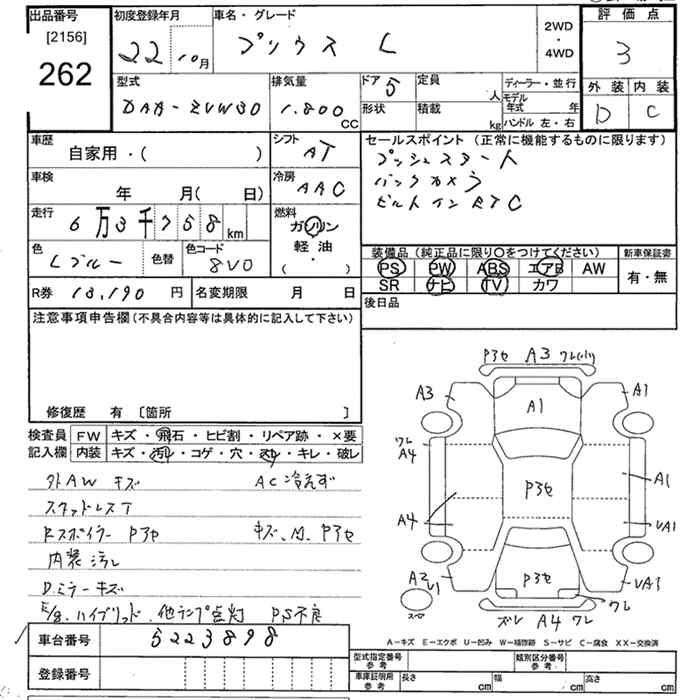 出品番号
[2156]
262
初度登録年月
22 10月
車名・グレード
プリウス L
2WD
・
4WD
評価点
3
外装 内装
D C
型式
DAA-ZVW30
排気量
1.800
CC
ドア 5
形状
定員
人
積載
kg
ディーラー・並行
モデル
年式 年
ハンドル 左・右
車歴
自家用・( )
車検
年 月( 日)
走行
6万3千758km
色
Lブルー
色替
色コード
8V0
シフト
AT
冷房
AAC
燃料
ガソリン
軽油
( ・ )
セールスポイント (正常に機能するものに限ります)
プッシュスタート
バックカメラ
ビルトインETC
装備品 (純正品に限り○をつけてください)
PS PW ABS エアB AW
SR ナビ TV カワ
新車保証書
有・無
R券 13,190 円
名変期限 月 日
後日品
注意事項申告欄 (不具合内容等は具体的に記入して下さい)
修復歴 有 [箇所 ]
検査員
記入欄
FW キズ・飛石・ヒビ割・リペア跡・×要
内装 キズ・汚レ・コゲ・穴・スレ・キレ・破レ
外AW キズ
AC冷えず
スタッドレスT
Rスポイラー P3セ
キズ、凹、P3セ
内装 汚レ
Dミラーキズ
E/g.ハイブリッド.他ランプ点灯 PS不良
P3セ A3 ワレ(小)
A3
A1
A1
ワレ
A4
P3セ
A1
A4
UA1
A2
U1
P3セ
UA1
ワレ
スペア
ズレ A4 ワレ
A-キズ E-エクボ U-凹み W-補修跡 S-サビ C-腐食 XX-交換済
車台番号
5223898
登録番号
型式指定番号
参考
類別区分番号
参考
車庫証明用
参考
長さ cm
幅 cm
高さ cm